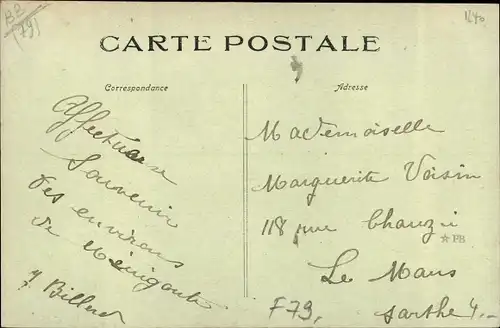 BB
(79)
1640
CARTE POSTALE
Correspondance
Affectueux
Souvenir
des environs
de
Y Billerd
Adresse
Mademoiselle
Marguerite Voisin
118 rue Chanzy
★PB
Le Mans
Sarthe
F79.